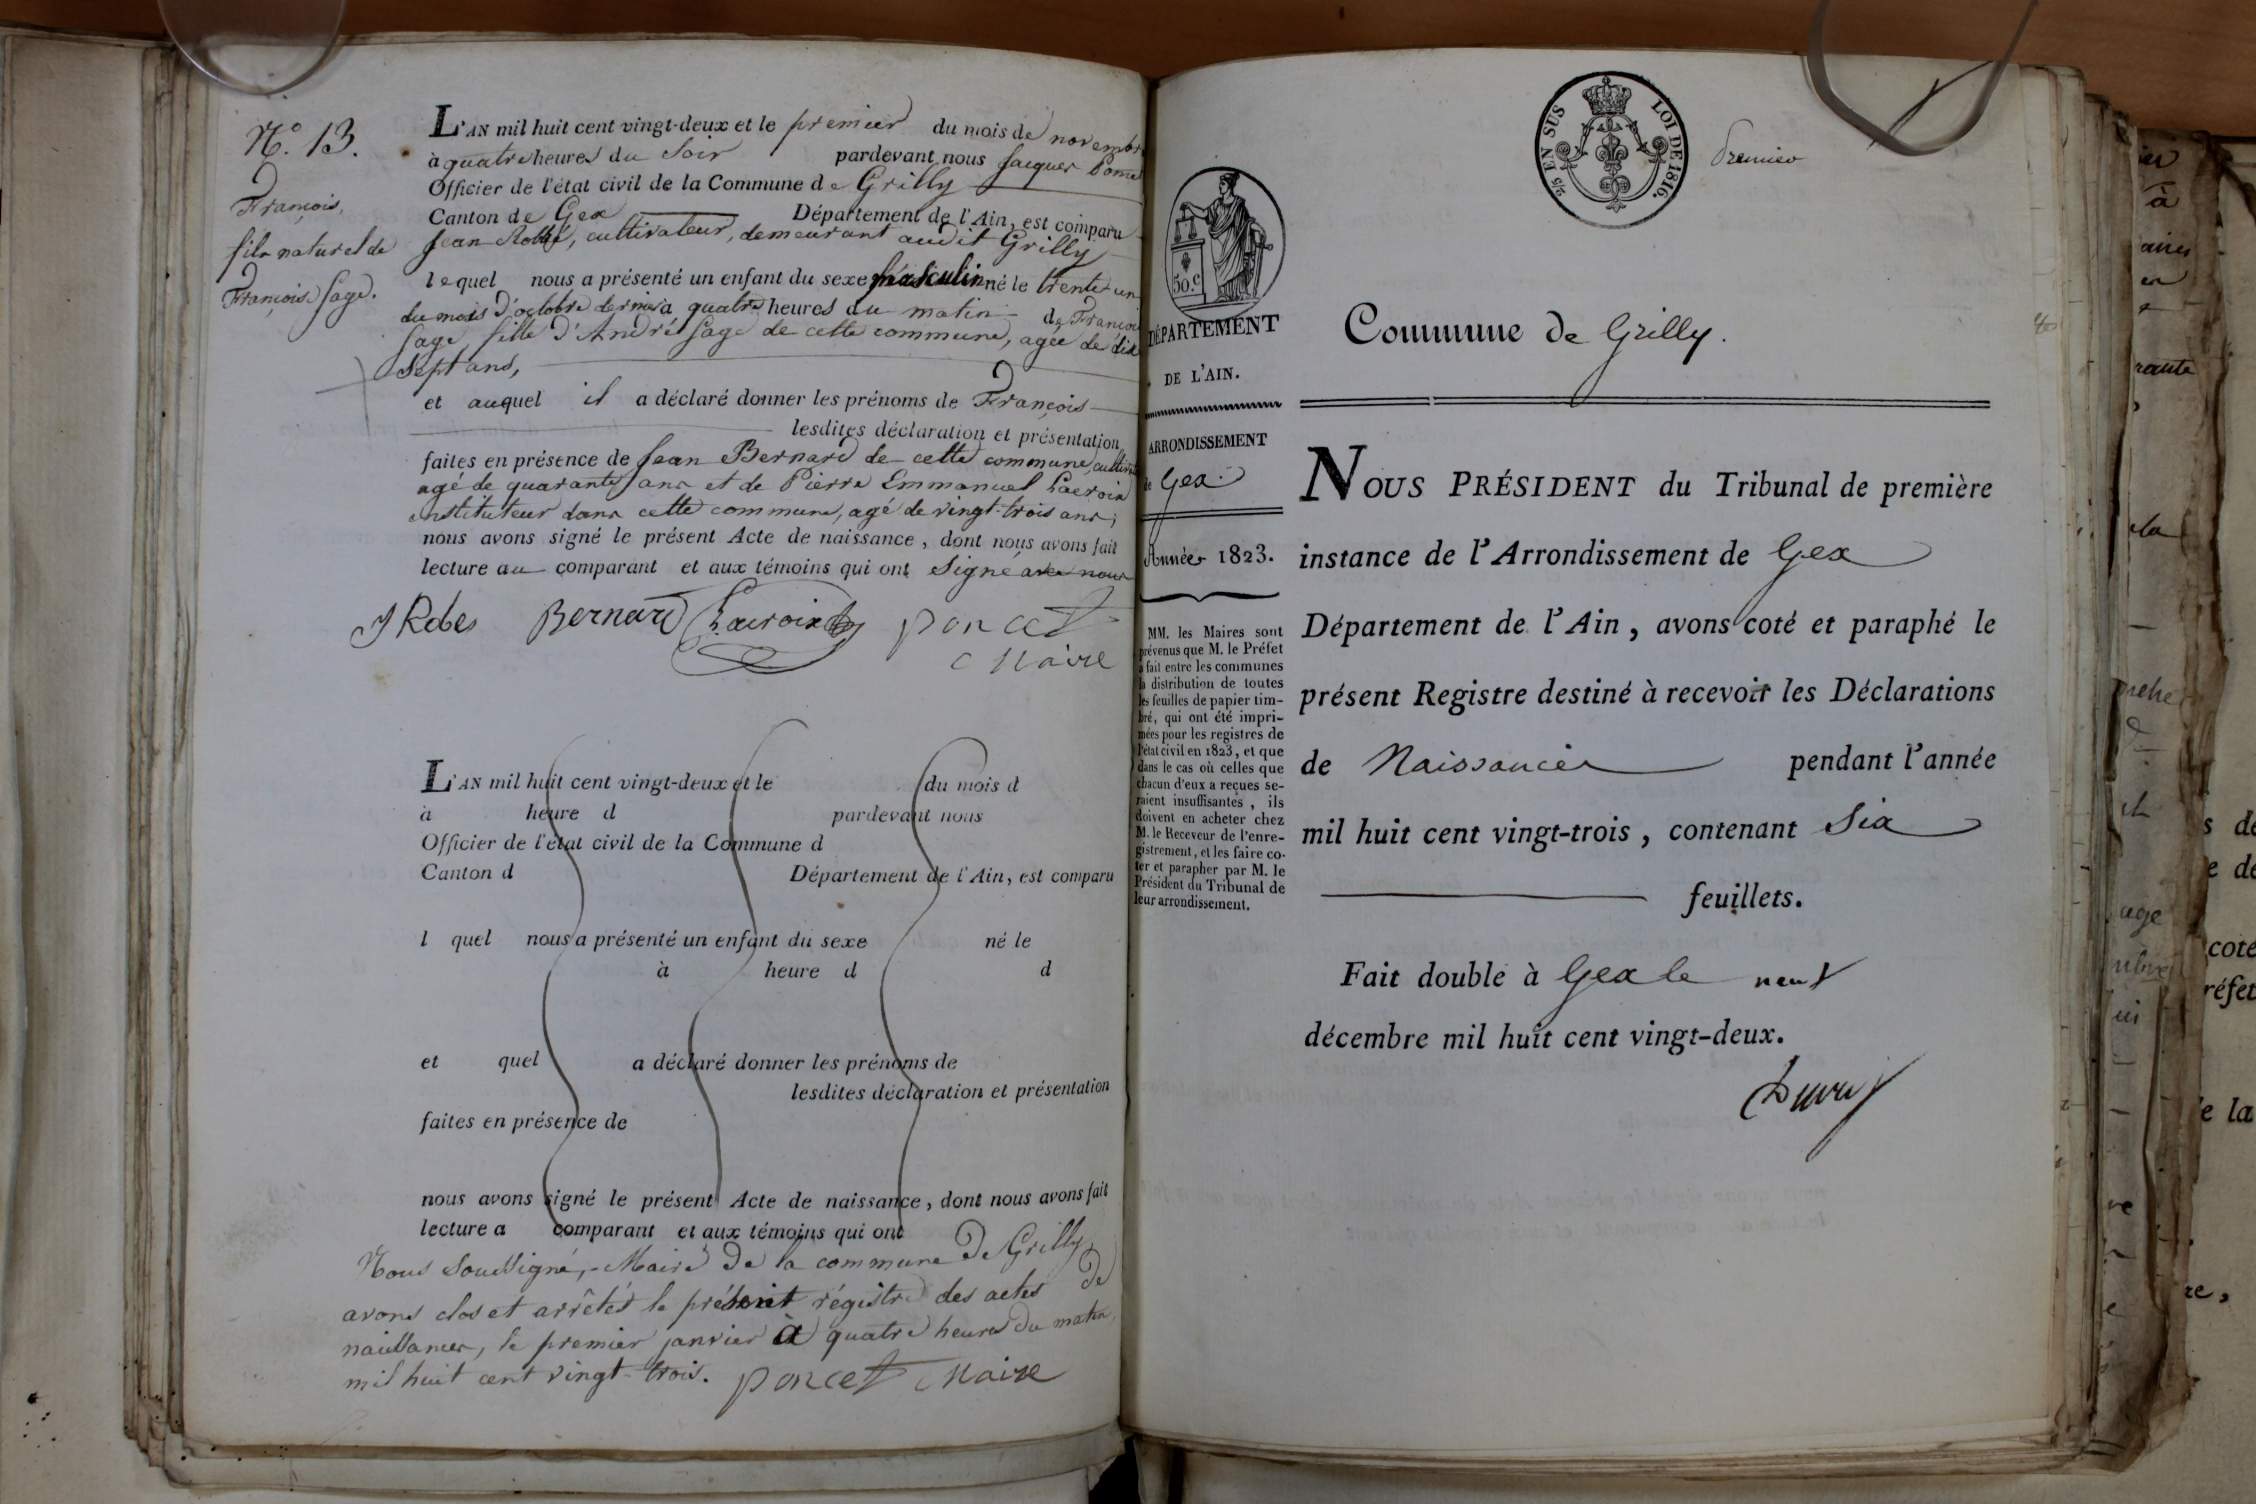 N.° 13.
François,
fils naturel de
Françoise Sage.
L'AN mil huit cent vingt-deux et le premier du mois de novembre
à quatre heures du Soir pardevant nous Jacques Poncet
Officier de l'état civil de la Commune de Grilly
Canton de Gex Département de l'Ain, est comparu
Jean cultivateur, demeurant audit Grilly
lequel nous a présenté un enfant du sexe masculin né le trente-un
du mois d'octobre dernier à quatre heures du matin de Françoise
Sage, fille d'André Sage de cette commune, agée de dix
Sept ans,
et auquel il a déclaré donner les prénoms de François
lesdites déclaration et présentation
faites en présence de Jean Bernard de cette commune, cultivateur
agé de quarante ans et de Pierre Emmanuel Lacroix
instituteur dans cette commune, agé de vingt-trois ans;
nous avons signé le présent Acte de naissance, dont nous avons fait
lecture au comparant et aux témoins qui ont Signé avec nous
J Robes Bernard Lacroix poncet
Maire
L'AN mil huit cent vingt-deux et le du mois d
à heure d pardevant nous
Officier de l'état civil de la Commune d
Canton d Département de l'Ain, est comparu
l quel nous a présenté un enfant du sexe né le
à heure d d
et quel a déclaré donner les prénoms de
lesdites déclaration et présentation
faites en présence de
nous avons signé le présent Acte de naissance, dont nous avons fait
lecture a comparant et aux témoins qui ont
Nous Soussigné, Maire de la commune de Grilly
avons clos et arrêtés le présent régistre des actes de
naissances, le premier janvier à quatre heures du matin,
mil huit cent vingt-trois. poncet Maire
2/5 EN SUS LOI DE 1816.
Premier
50.c
DÉPARTEMENT
DE L'AIN.
ARRONDISSEMENT
de Gex
Année 1823.
MM. les Maires sont
prévenus que M. le Préfet
a fait entre les communes
la distribution de toutes
les feuilles de papier tim-
bré, qui ont été impri-
mées pour les registres de
l'état civil en 1823, et que
dans le cas où celles que
chacun d'eux a reçues se-
raient insuffisantes, ils
doivent en acheter chez
M. le Receveur de l'enre-
gistrement, et les faire co-
ter et parapher par M. le
Président du Tribunal de
leur arrondissement.
Commune de Grilly.
NOUS PRÉSIDENT du Tribunal de première
instance de l'Arrondissement de Gex
Département de l'Ain, avons coté et paraphé le
présent Registre destiné à recevoir les Déclarations
de Naissances pendant l'année
mil huit cent vingt-trois, contenant Six
feuillets.
Fait double à Gex le neuf
décembre mil huit cent vingt-deux.